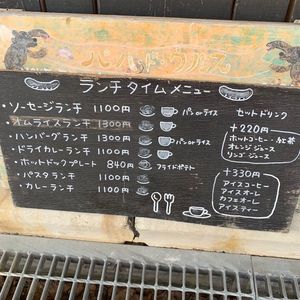 ランチタイムメニュー
・ソーセージランチ 1100円 パンorライス
・オムライスランチ 1300円
・ハンバーグランチ 1300円 パンorライス
・ドライカレーランチ 1100円
・ホットドックプレート 840円 フライドポテト
・パスタランチ 1100円
・カレーランチ 1100円
セットドリンク
+220円
ホットコーヒー・紅茶
オレンジジュース
リンゴジュース
+330円
アイスコーヒー
アイスオーレ
カフェオーレ
アイスティー